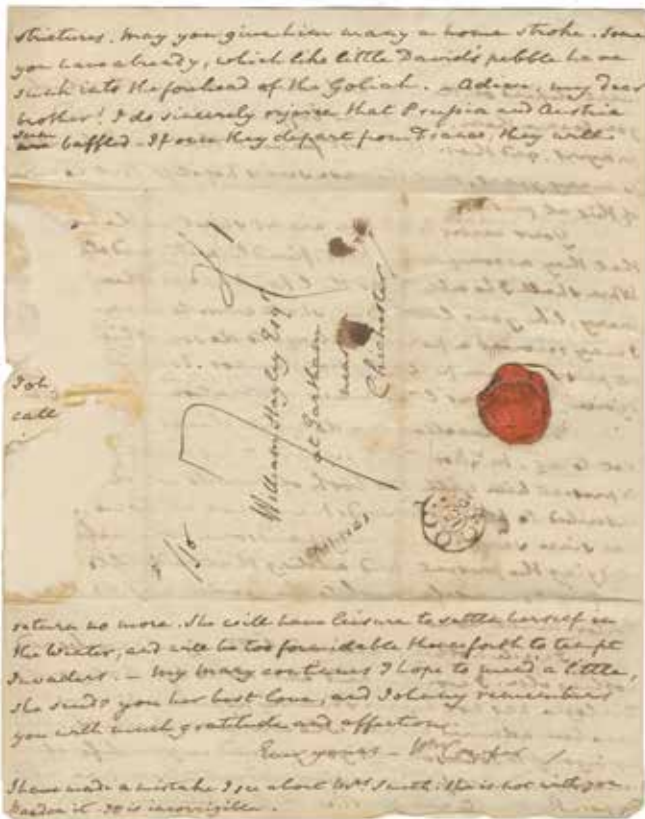 strictures. May you give him many a home stroke. Some
you have already, which like little David's pebble have
sunk into the forehead of the Goliah. – Adieu, my dear
brother! I do sincerely rejoice that Prussia and Austria
seem baffled. If once they depart from France, they will
William Hayley Esqr
at Eartham
near
Chichester
Joh
call
return no more. She will have leisure to settle herself in
the Winter, and will be too formidable thenceforth to tempt
Invaders. – My Mary continues I hope to mend a little,
she sends you her best love, and Johnny remembers
you with much gratitude and affection.
Ever yours – Wm Cowper
I have made a mistake I see about Mrs Smith. She is not with you.
Pardon it – it is incorrigible.